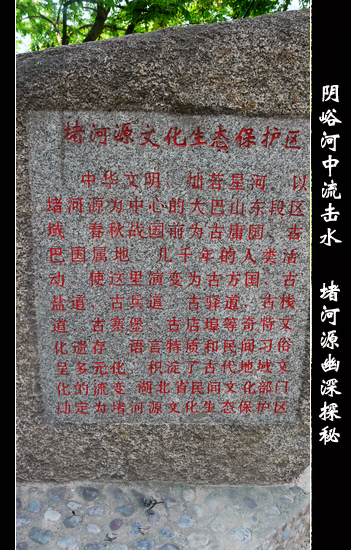 堵河源文化生态保护区
中华文明 灿若星河 以
堵河源为中心的大巴山东段区
域 春秋战国前为古庸国、古
巴国属地 几千年的人类活
动 使这里演变为古方国、古
盐道、古兵道、古驿道、古栈
道、古寨堡、古庙埠等奇特文
化遗存 语言特质和民间习俗
呈多元化 积淀了古代地域文
化的流变 湖北省民间文化部门
确定为堵河源文化生态保护区
阴峪河中流击水 堵河源幽深探秘